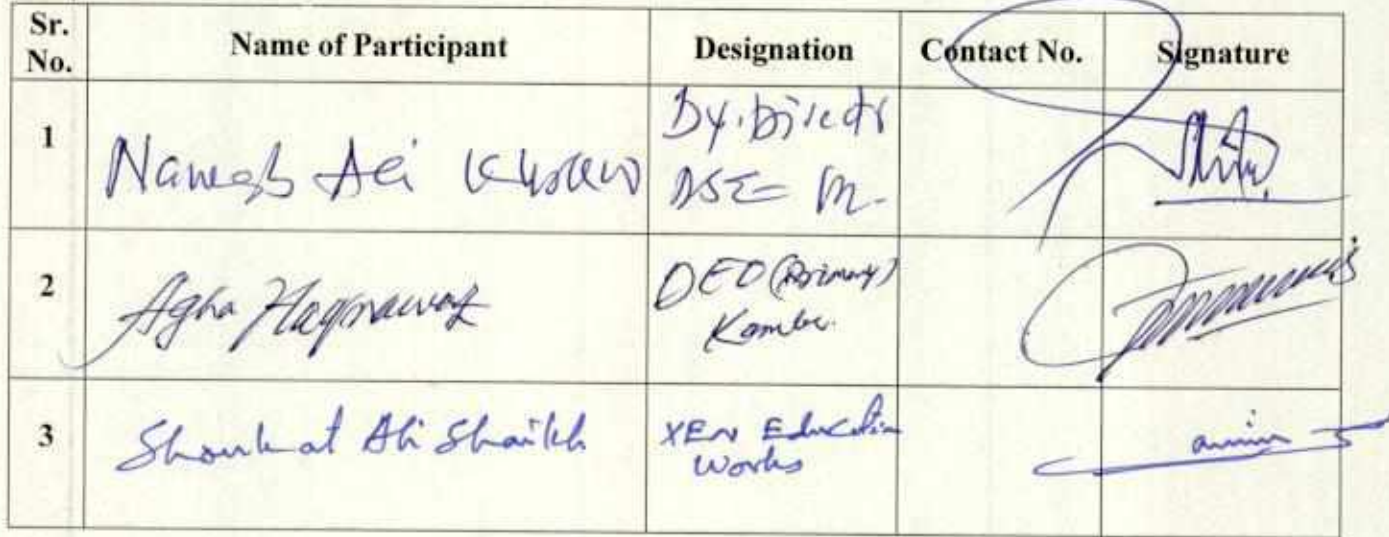 Sr. No. Name of Participant Designation Contact No. Signature
1 Ali Dy. Director
DSE
2 Agha Haqnawaz DEO (Primary)
Kamber
3 Shoukat Ali Shaikh XEN Education
Works